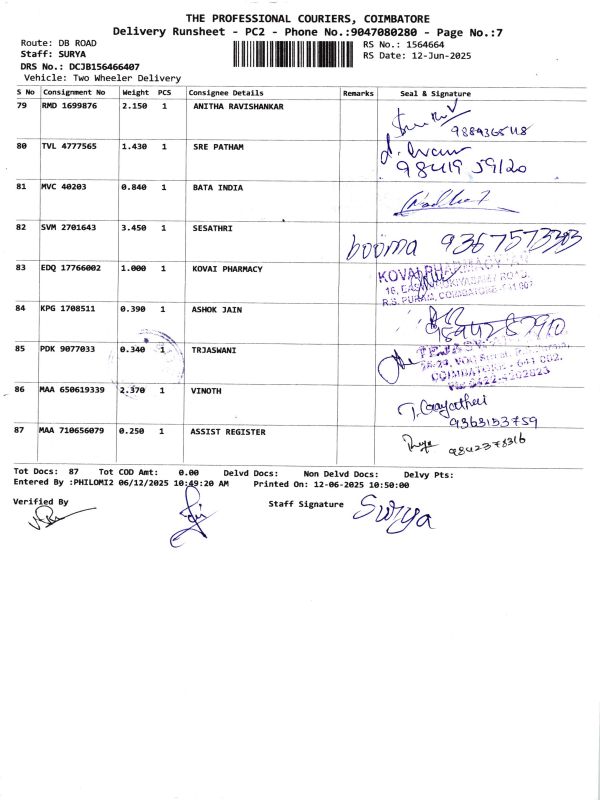 THE PROFESSIONAL COURIERS, COIMBATORE
Delivery Runsheet - PC2 - Phone No.:9047080280 - Page No.:7
Route: DB ROAD
RS No.: 1564664
Staff: SURYA
RS Date: 12-Jun-2025
DRS No.: DCJB156466407
Vehicle: Two Wheeler Delivery
S No Consignment No Weight PCS Consignee Details Remarks Seal & Signature
79 RMD 1699876 2.150 1 ANITHA RAVISHANKAR
9889365118
80 TVL 4777565 1.430 1 SRE PATHAM
98419 59120
81 MVC 40203 0.840 1 BATA INDIA
82 SVM 2701643 3.450 1 SESATHRI
booma 9367573303
83 EDQ 17766002 1.000 1 KOVAI PHARMACY
KOVAI PHARMACY
R.S. PURAM, COIMBATORE-641 002
84 KPG 1708511 0.390 1 ASHOK JAIN
85 PDK 9077033 0.340 1 TRJASWANI
COIMBATORE - 641 002.
86 MAA 650619339 2.370 1 VINOTH
T. Gayatheri
9363153759
87 MAA 710656079 0.250 1 ASSIST REGISTER
9842378316
Tot Docs: 87 Tot COD Amt: 0.00 Delvd Docs: Non Delvd Docs: Delvy Pts:
Entered By :PHILOMI2 06/12/2025 10:49:20 AM Printed On: 12-06-2025 10:50:00
Verified By
Staff Signature Surya